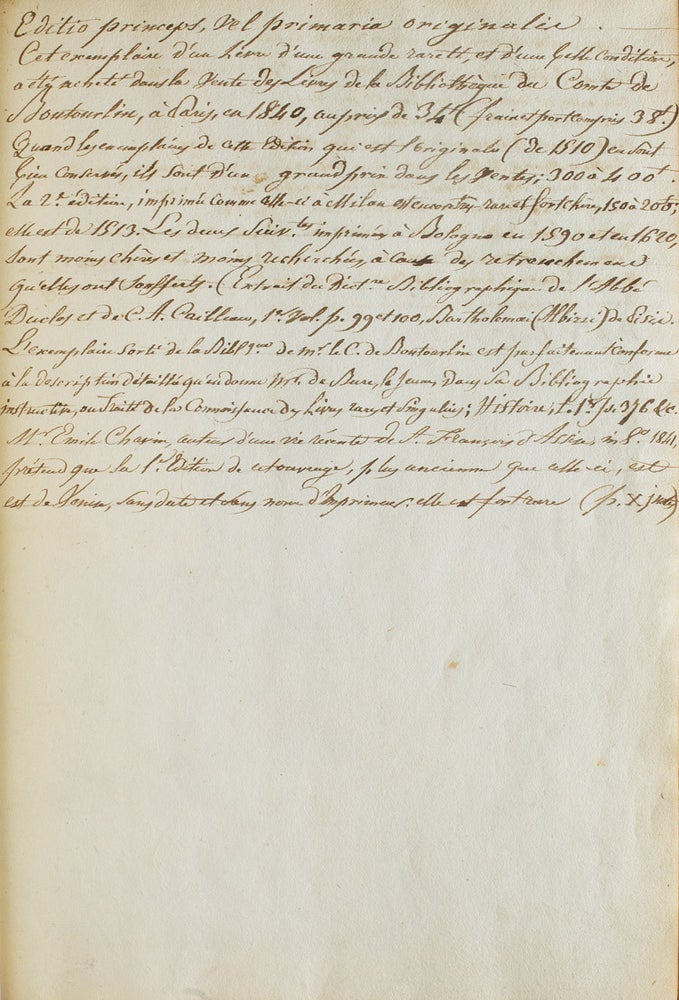 Editio princeps, vel primaria originalis.
Cet exemplaire d'un Livre d'une grande rareté, et d'une belle condition,
a été acheté dans la Vente des Livres de la Bibliothèque du Comte de
Boutourlin, à Paris, en 1840, au prix de 34 (frais et port compris 38)
Quand les exemplaires de cette Edition qui est l'originale (de 1510) en sont
bien conservés, ils sont d'un grand prix dans les Ventes; 300 à 400
La 2e édition, imprimée comme celle-ci à Milan est encore très rare et fort chère, 150 à 200;
elle est de 1513. Les deux Suiv.tes imprimées à Bologne en 1590 et en 1620,
sont moins chères et moins recherchées, à cause des retranchemens
qu'elles ont soufferts. (Extrait du Dict.re Bibliographique de l'Abbé
Duclos et de C. A. Cailleau, 1er Vol. p. 99 et 100, Bartholomaei (Albizzi) de Pisis.
L'exemplaire sorti de la Bibl.que de mr. le C. de Boutourlin est parfaitement conforme
à la description détaillée qu'en donne Mr. de Bure, le Jeune, dans sa Bibliographie
instructive, ou Traité de la Connaissance des Livres rares et singuliers; Histoire, t. 1er p. 376 &c.
Mr. Emile Chavin, auteur d'une vie récente de St. François d'Assise, in 8o. 1841,
prétend que la 1e Edition de cet ouvrage, plus ancienne que celle-ci, est
est de Venise, sans date et sans nom d'Imprimeur. elle est fort rare (p. Xj note)